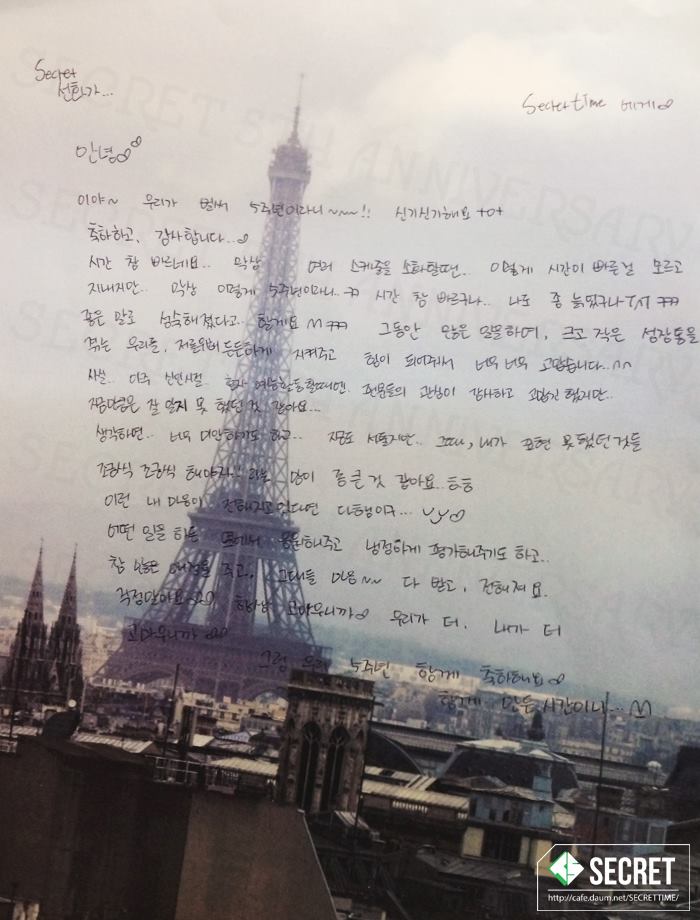 Secret
선화가...
SecretTime 에게
안녕
이야~ 우리가 벌써 5주년이라니~~~!! 신기신기해요 +o+
축하하고, 감사합니다...
시간 참 빠르네요.. 막상 여러 스케줄을 소화할땐.. 이렇게 시간이 빠른걸 모르고
지내지만.. 막상 이렇게 5주년이라니.. ㅠㅠ 시간 참 빠르구나.. 나도 좀 늙었구나 TAT ㅠㅠ
좋은 말로 성숙해졌다고.. 할게요 ㅠㅠ 그동안 많은 일을하며, 크고 작은 성장통을
겪는 우리를, 저를 든든하게 지켜주고 힘이 되어주셔서 너무 너무 고맙습니다..^^
사실.. 아주 신인시절.. 혼자 예능활동할때엔, 팬분들의 관심이 감사하고 고맙긴 했지만..
잘 알지 못 했던 것 같아요...
생각하면.. 너무 미안하기도 하고.. 지금도 서툴지만.. 그때, 내가 표현 못 했던 것들
조금씩 조금씩 해야지.. 라는 맘이 큰 것 같아요.. ㅎㅎ
이런 내 마음이 전해지고 있다면 다행이구...
어떤 일을 하든 옆에서 응원해주고 냉정하게 평가해주기도 하고..
참 많은 애정을 주고.. 그대들 마음~~ 다 받고, 전해져요.
걱정말아요 항상 고마우니까 우리가 더, 내가 더
고마우니까
그럼 우리 5주년 함께 축하해요
함께 만든 시간이니...
SECRET 5TH ANNIVERSARY
SECRET
http://cafe.daum.net/SECRETTIME/